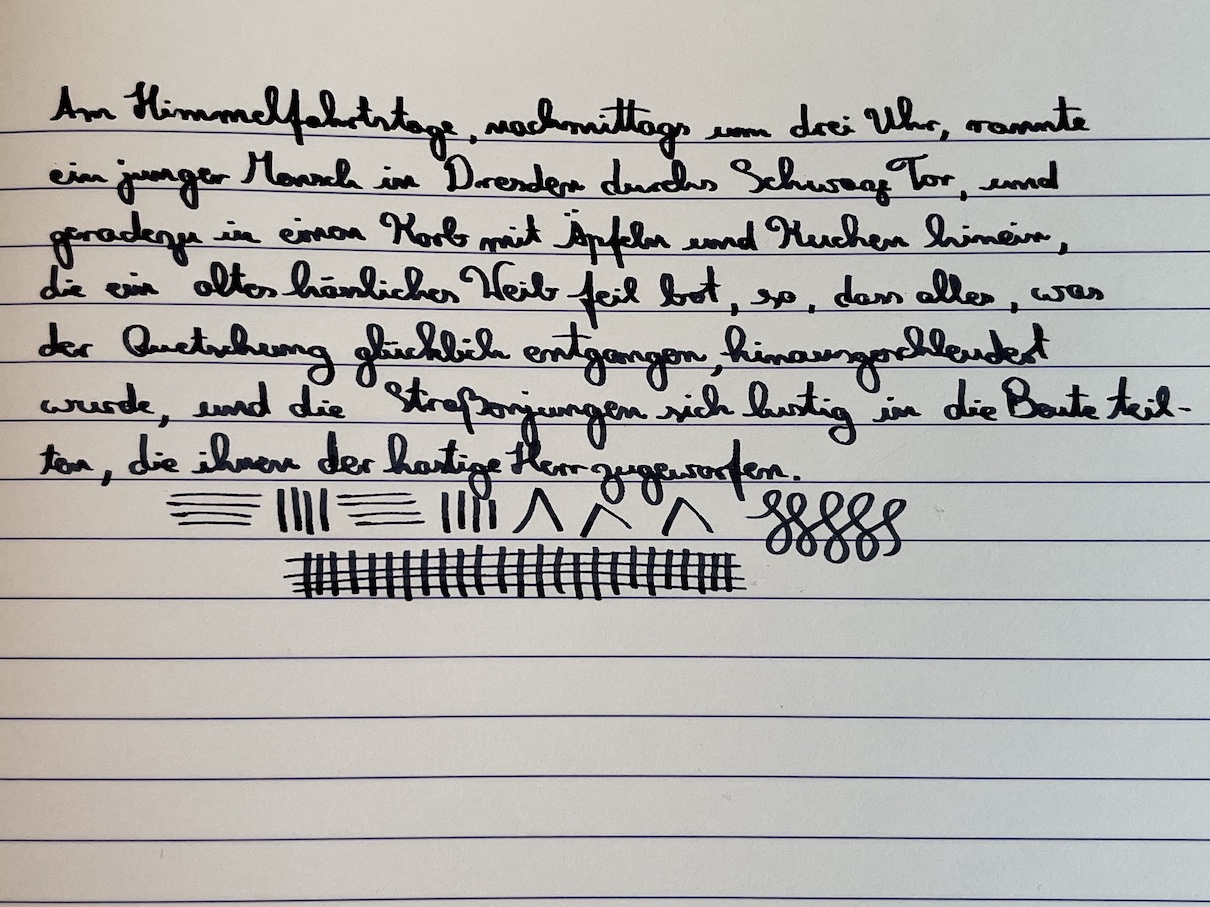 Am Himmelfahrtstage, nachmittags um drei Uhr, rannte
ein junger Mensch in Dresden durchs Schwarz Tor, und
geradezu in einen Korb mit Äpfeln und Kuchen hinein,
die ein altes hässliches Weib feil bot, so, dass alles, was
der Quetschung glücklich entgangen, hinausgeschleudert
wurde, und die Straßenjungen sich lustig in die Beute teil-
ten, die ihnen der hastige Herr zugeworfen.